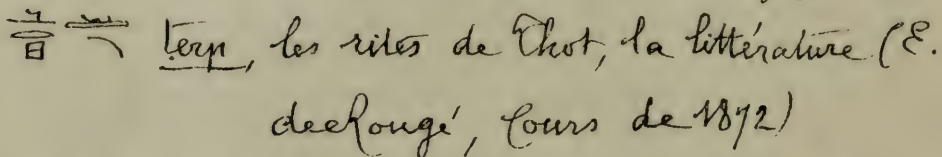 terp, les rites de Thot, la littérature (E.
de Rougé, Cours de 1872)